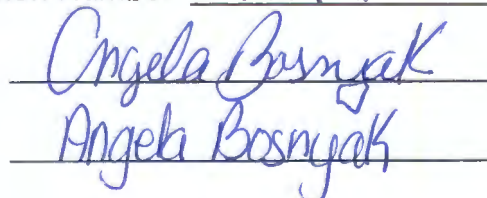 Angela Bosnyak
Angela Bosnyak